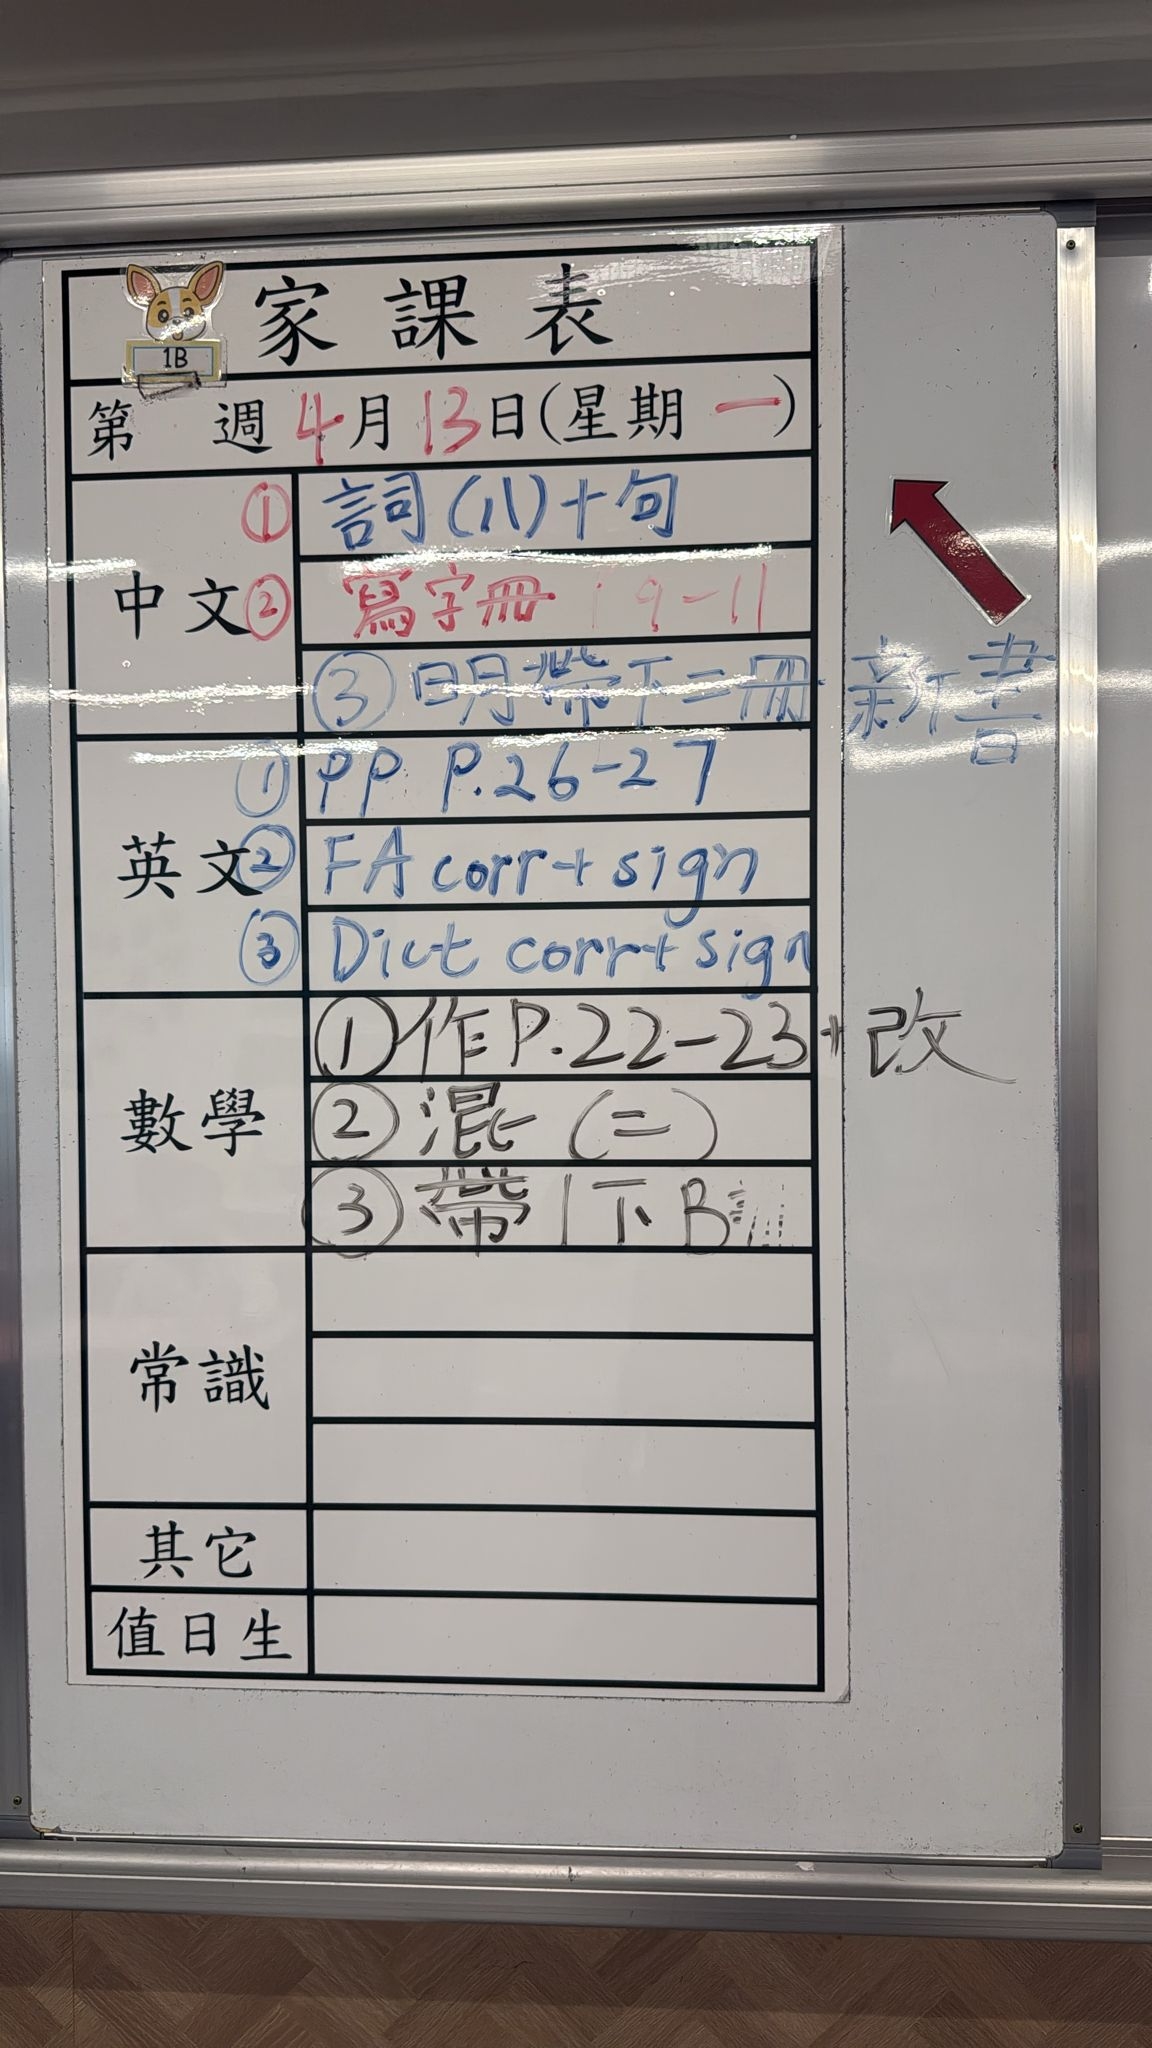 家課表
1B
第 週 4月13日(星期一)
中文
① 詞(八)+句
② 寫字冊 9-11
③ 明帶下二冊 新書
英文
① PP P.26-27
② FA corr+sign
③ Dict corr+sign
數學
① 作P.22-23+改
② 混(二)
③ 帶1下B
常識
其它
值日生